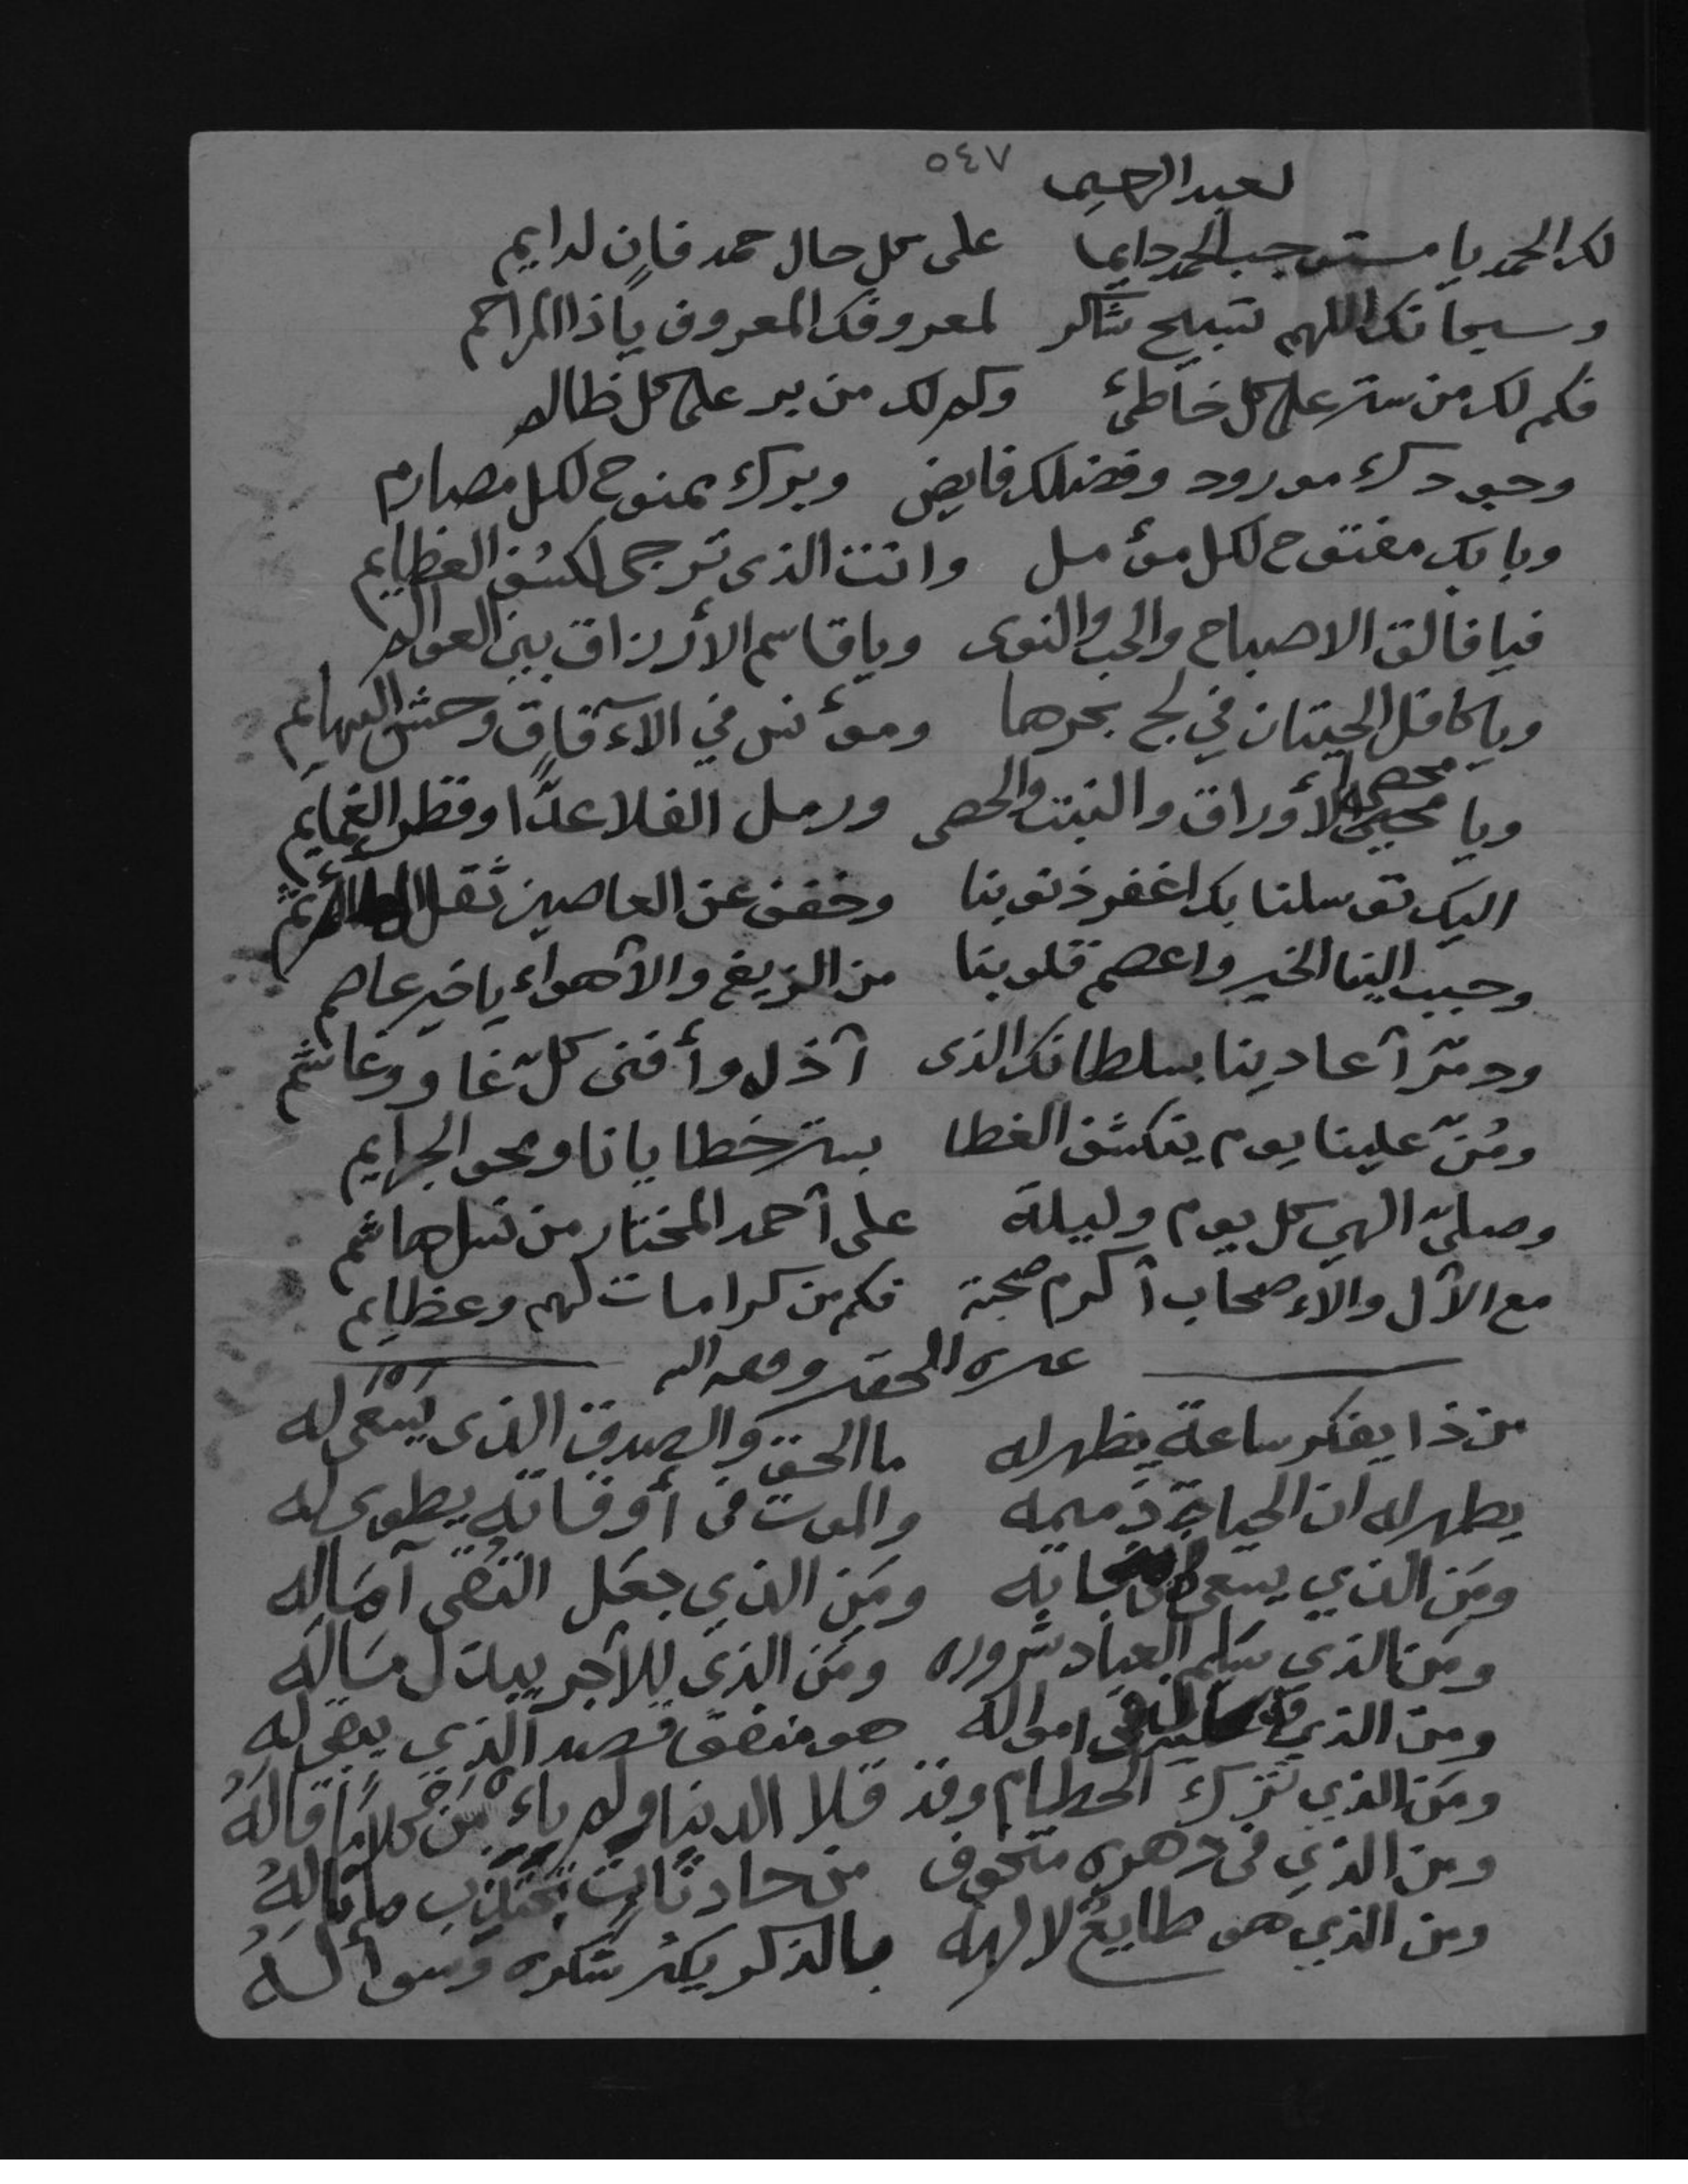 ٥٤٧
لعبد الرحيم
لك الحمد يا مستوجب الحمد دايما على كل حال حمد فانٍ لدايم
وسبحانك اللهم تسبيح شاكر لمعروفك المعروف يا ذا المراحم
فكم لك من ستر على كل خاطئ وكم لك من بر على كل ظالم
وجودك مورود وفضلك فايض وبرك ممنوح لكل مصارم
وبابك مفتوح لكل مؤمل وانت الذى ترجى لكشف العظايم
فيا فالق الاصباح والحب والنوى ويا قاسم الأرزاق بين العوالم
ويا كافل الحيتان في لج بحرها ومؤنس في الآفاق وحش البهايم
ويا محصى الأوراق والنبت والحصى ورمل الفلا عدًّا وقطر الغمايم
اليك توسلنا بك اغفر ذنوبنا وخفف عن العاصين ثقل
وحبب الينا الخير واعصم قلوبنا من الزيغ والأهواء يا خير عاصم
ودمّر آعادينا بسلطانك الذى آذل وأفنى كلّ غا و وغاشم
ومُنّ علينا يوم ينكشف الغطا بستر خطايانا ومحو الجرايم
وصلىّ الهي كل يوم وليلة على آحمد المختار من نسل هاشم
مع الآل والاءصحاب آكرم صحبة فكم من كرامات لهم وعظايم
من ذا يفكر ساعة يظهر له ما الحق والصدق الذى يسعى له
يظهر له ان الحياة ذميمه والموت فى أوقاته يطوى له
ومَن الذي يسعى ومَن الذي جعَل التقى آمَاله
ومَن الذي سَلم العباد شروره ومَن الذي للآجر يبذل مَاله
ومن الذي امواله هو منفق قصد الذي يبقى له
ومَن الذي تَرك الحطام وقد قلا الدنيا ولم
ومن الذي فى دهره متخوف من حادثات
ومن الذي هو طايعٌ لالهه بالذكر يكثر شكره وسوأله